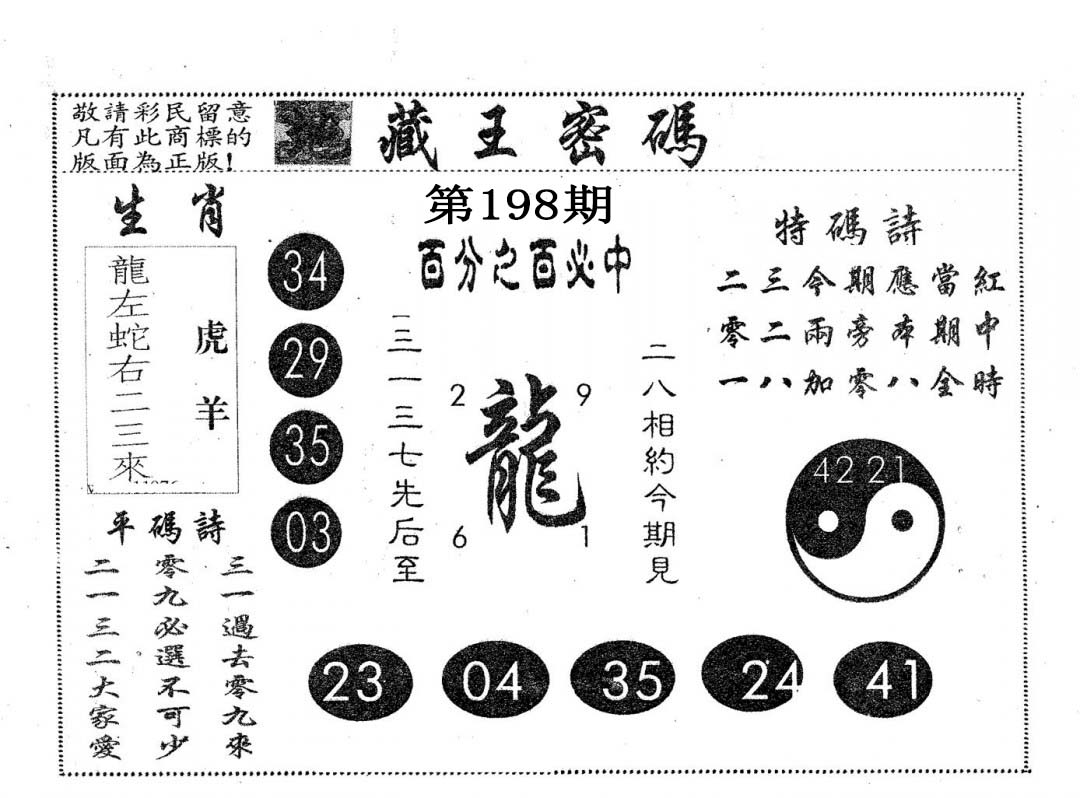 敬請彩民留意
凡有此商標的
版面為正版!
地藏王密碼
第198期
生肖
龍左蛇右二三來
虎羊
34
29
35
03
百分之百必中
三一三七先后至
2 9
龍
6 1
二八相約今期見
特碼詩
二三今期應當紅
零二兩旁本期中
一八加零八全時
42 21
平碼詩
三一過去零九來
零九必選不可少
二一三二大家愛
23 04 35 24 41